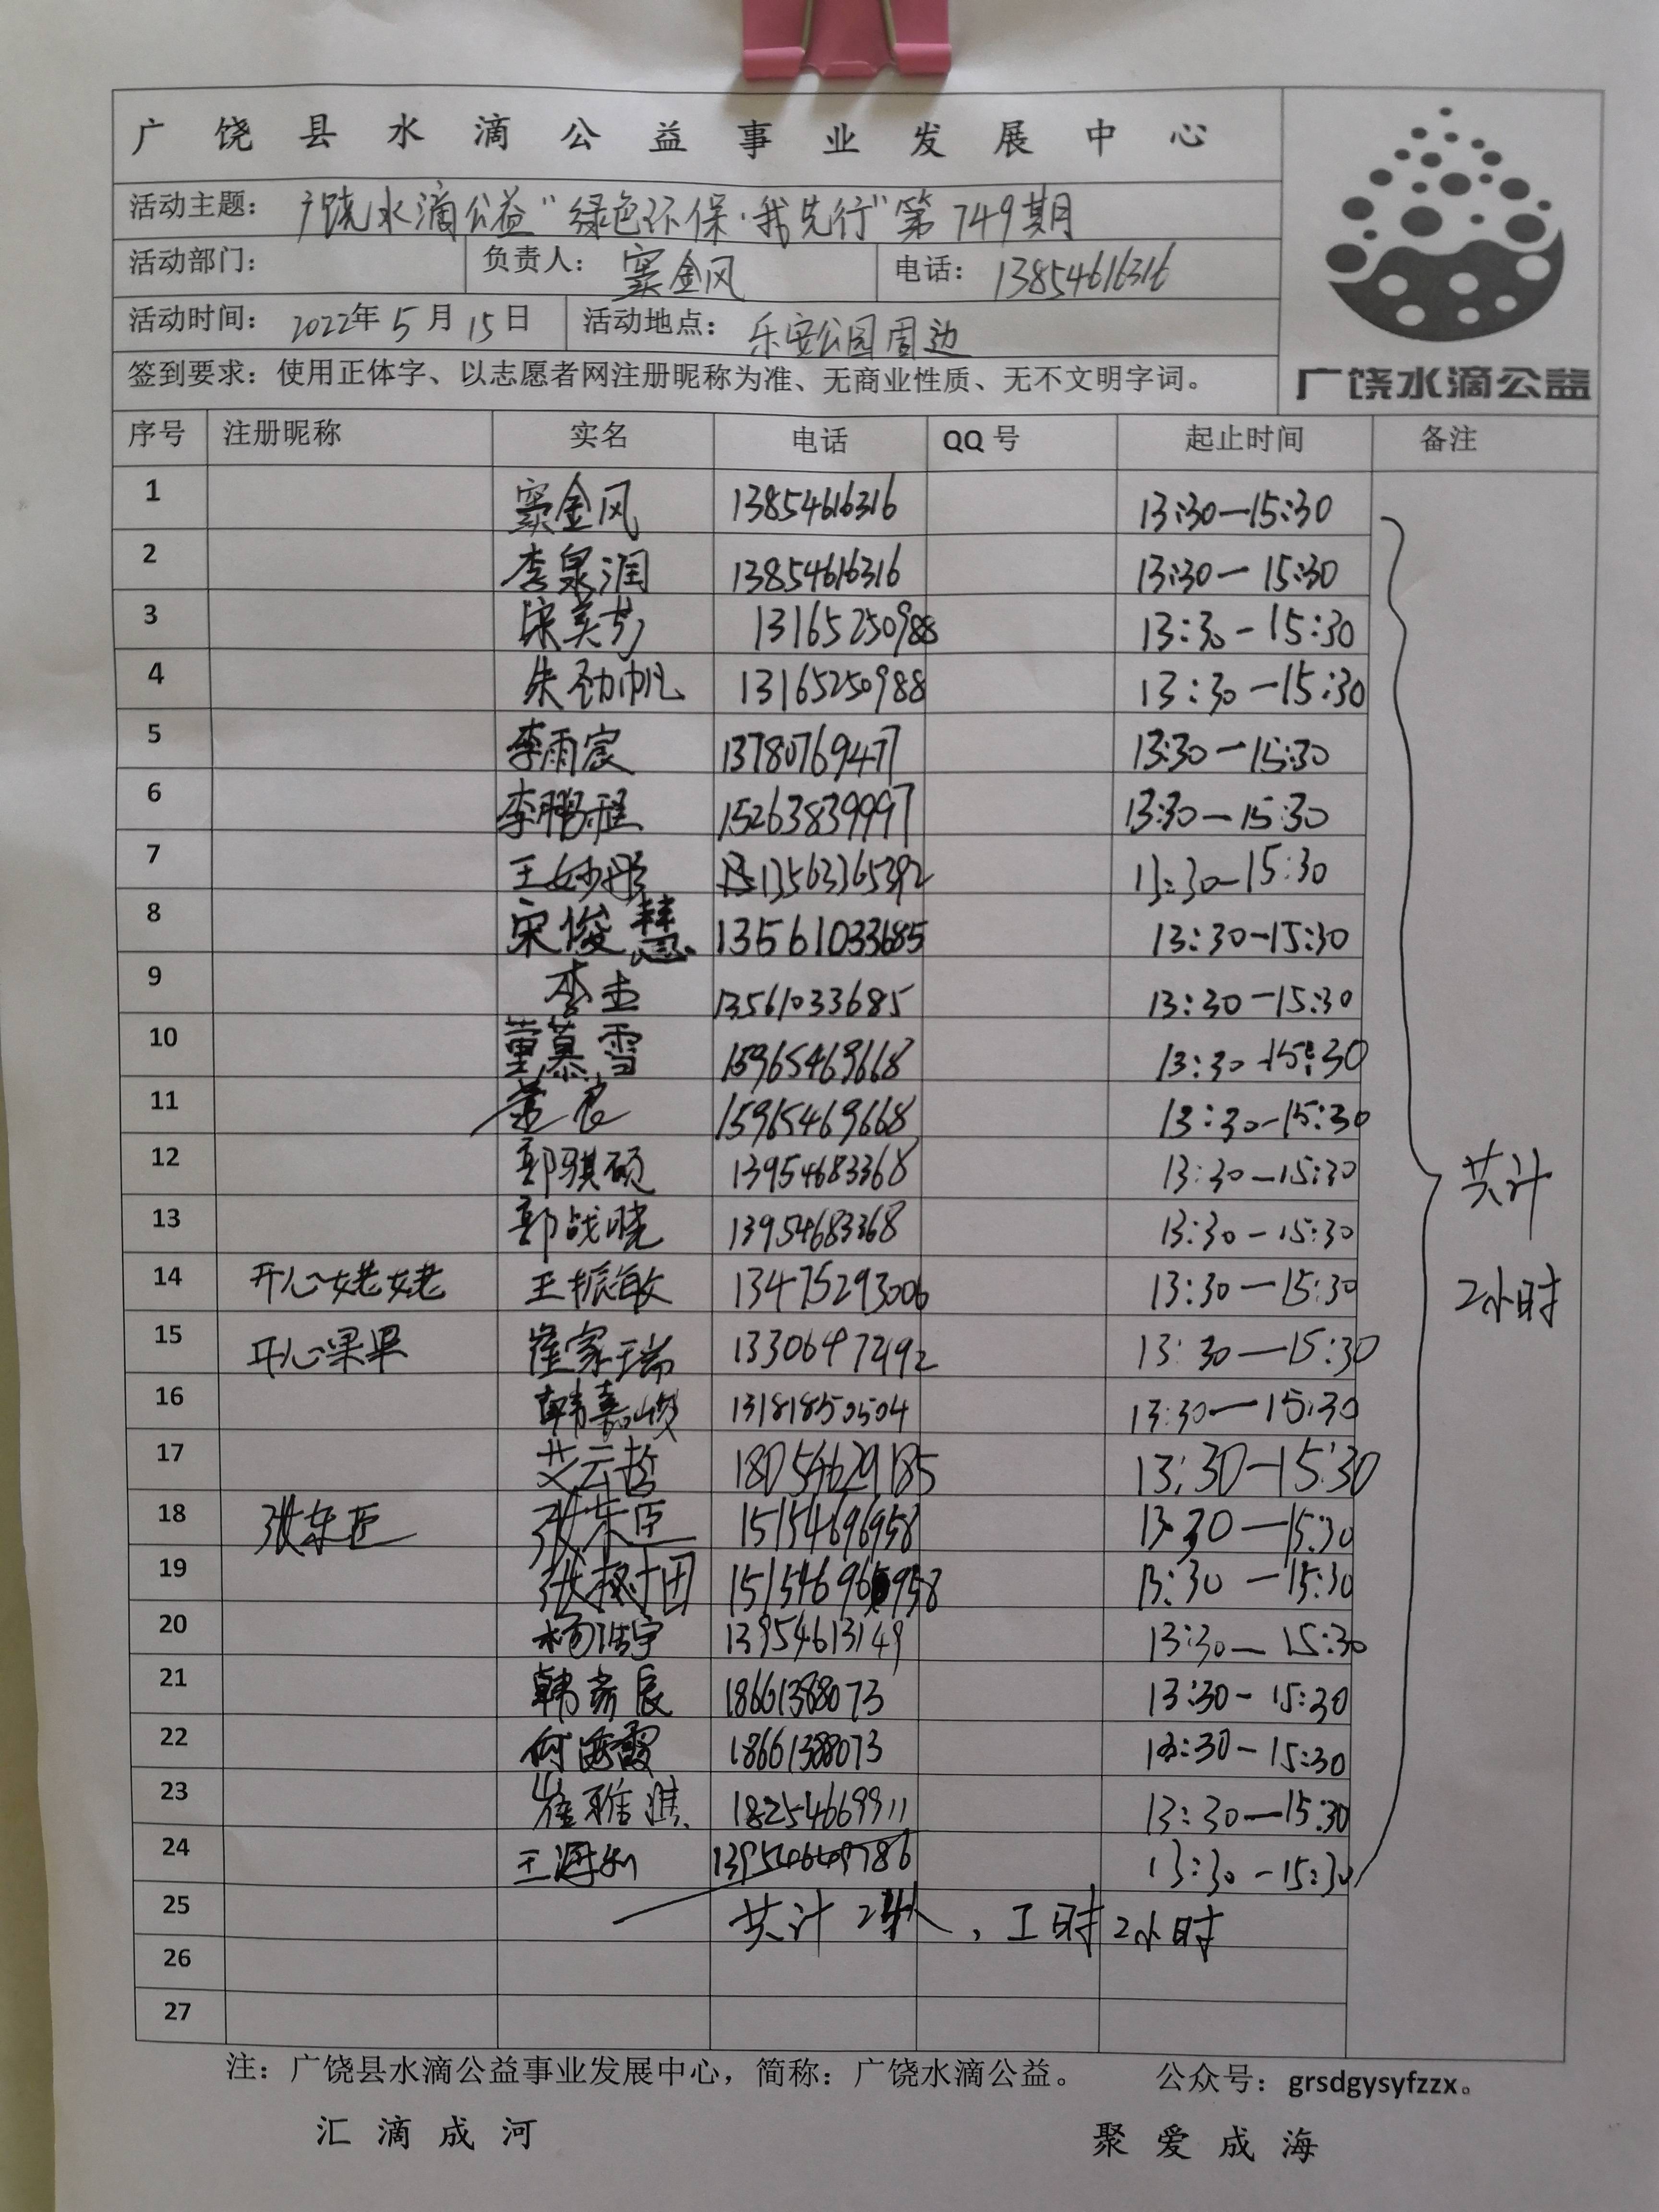 广饶县水滴公益事业发展中心
活动主题：广饶水滴公益"绿色环保·我先行"第749期
活动部门： 负责人：窦金风 电话：13854616316
活动时间：2022年5月15日 活动地点：乐安公园周边
签到要求：使用正体字、以志愿者网注册昵称为准、无商业性质、无不文明字词。
广饶水滴公益
序号 注册昵称 实名 电话 QQ号 起止时间 备注
1 窦金风 13854616316 13:30—15:30
2 李泉润 13854616316 13:30—15:30
3 宋美芳 13165250988 13:30-15:30
4 朱劲帆 13165250988 13:30—15:30
5 李雨宸 13780769477 13:30—15:30
6 李鹏程 15263839997 13:30—15:30
7 王妙彤 13563365392 13:30-15:30
8 宋俊慧 13561033685 13:30-15:30
9 李圭 13561033685 13:30-15:30
10 董慕雪 15965469668 13:30-15:30
11 15965469668 13:30-15:30
12 郭骐硕 13954683368 13:30—15:30
13 郭战晓 13954683368 13:30-15:30
14 开心姥姥 王振敏 13475293006 13:30—15:30
15 开心果果 崔家瑞 13306497492 13:30—15:30
16 韩嘉峻 13181850504 13:30—15:30
17 艾云哲 18054629185 13:30-15:30
18 张东臣 张东臣 15154696958 13:30—15:30
19 张树团 13:30—15:30
20 杨浩宇 13954613149 13:30—15:30
21 韩彦辰 18661388073 13:30-15:30
22 何海霞 18661388073 13:30-15:30
23 崔雅淇 18254669911 13:30—15:30
24 13:30-15:30
共计
2小时
25 共计24人，工时2小时
26
27
注：广饶县水滴公益事业发展中心，简称：广饶水滴公益。 公众号：grsdgysyfzzx。
汇滴成河 聚爱成海